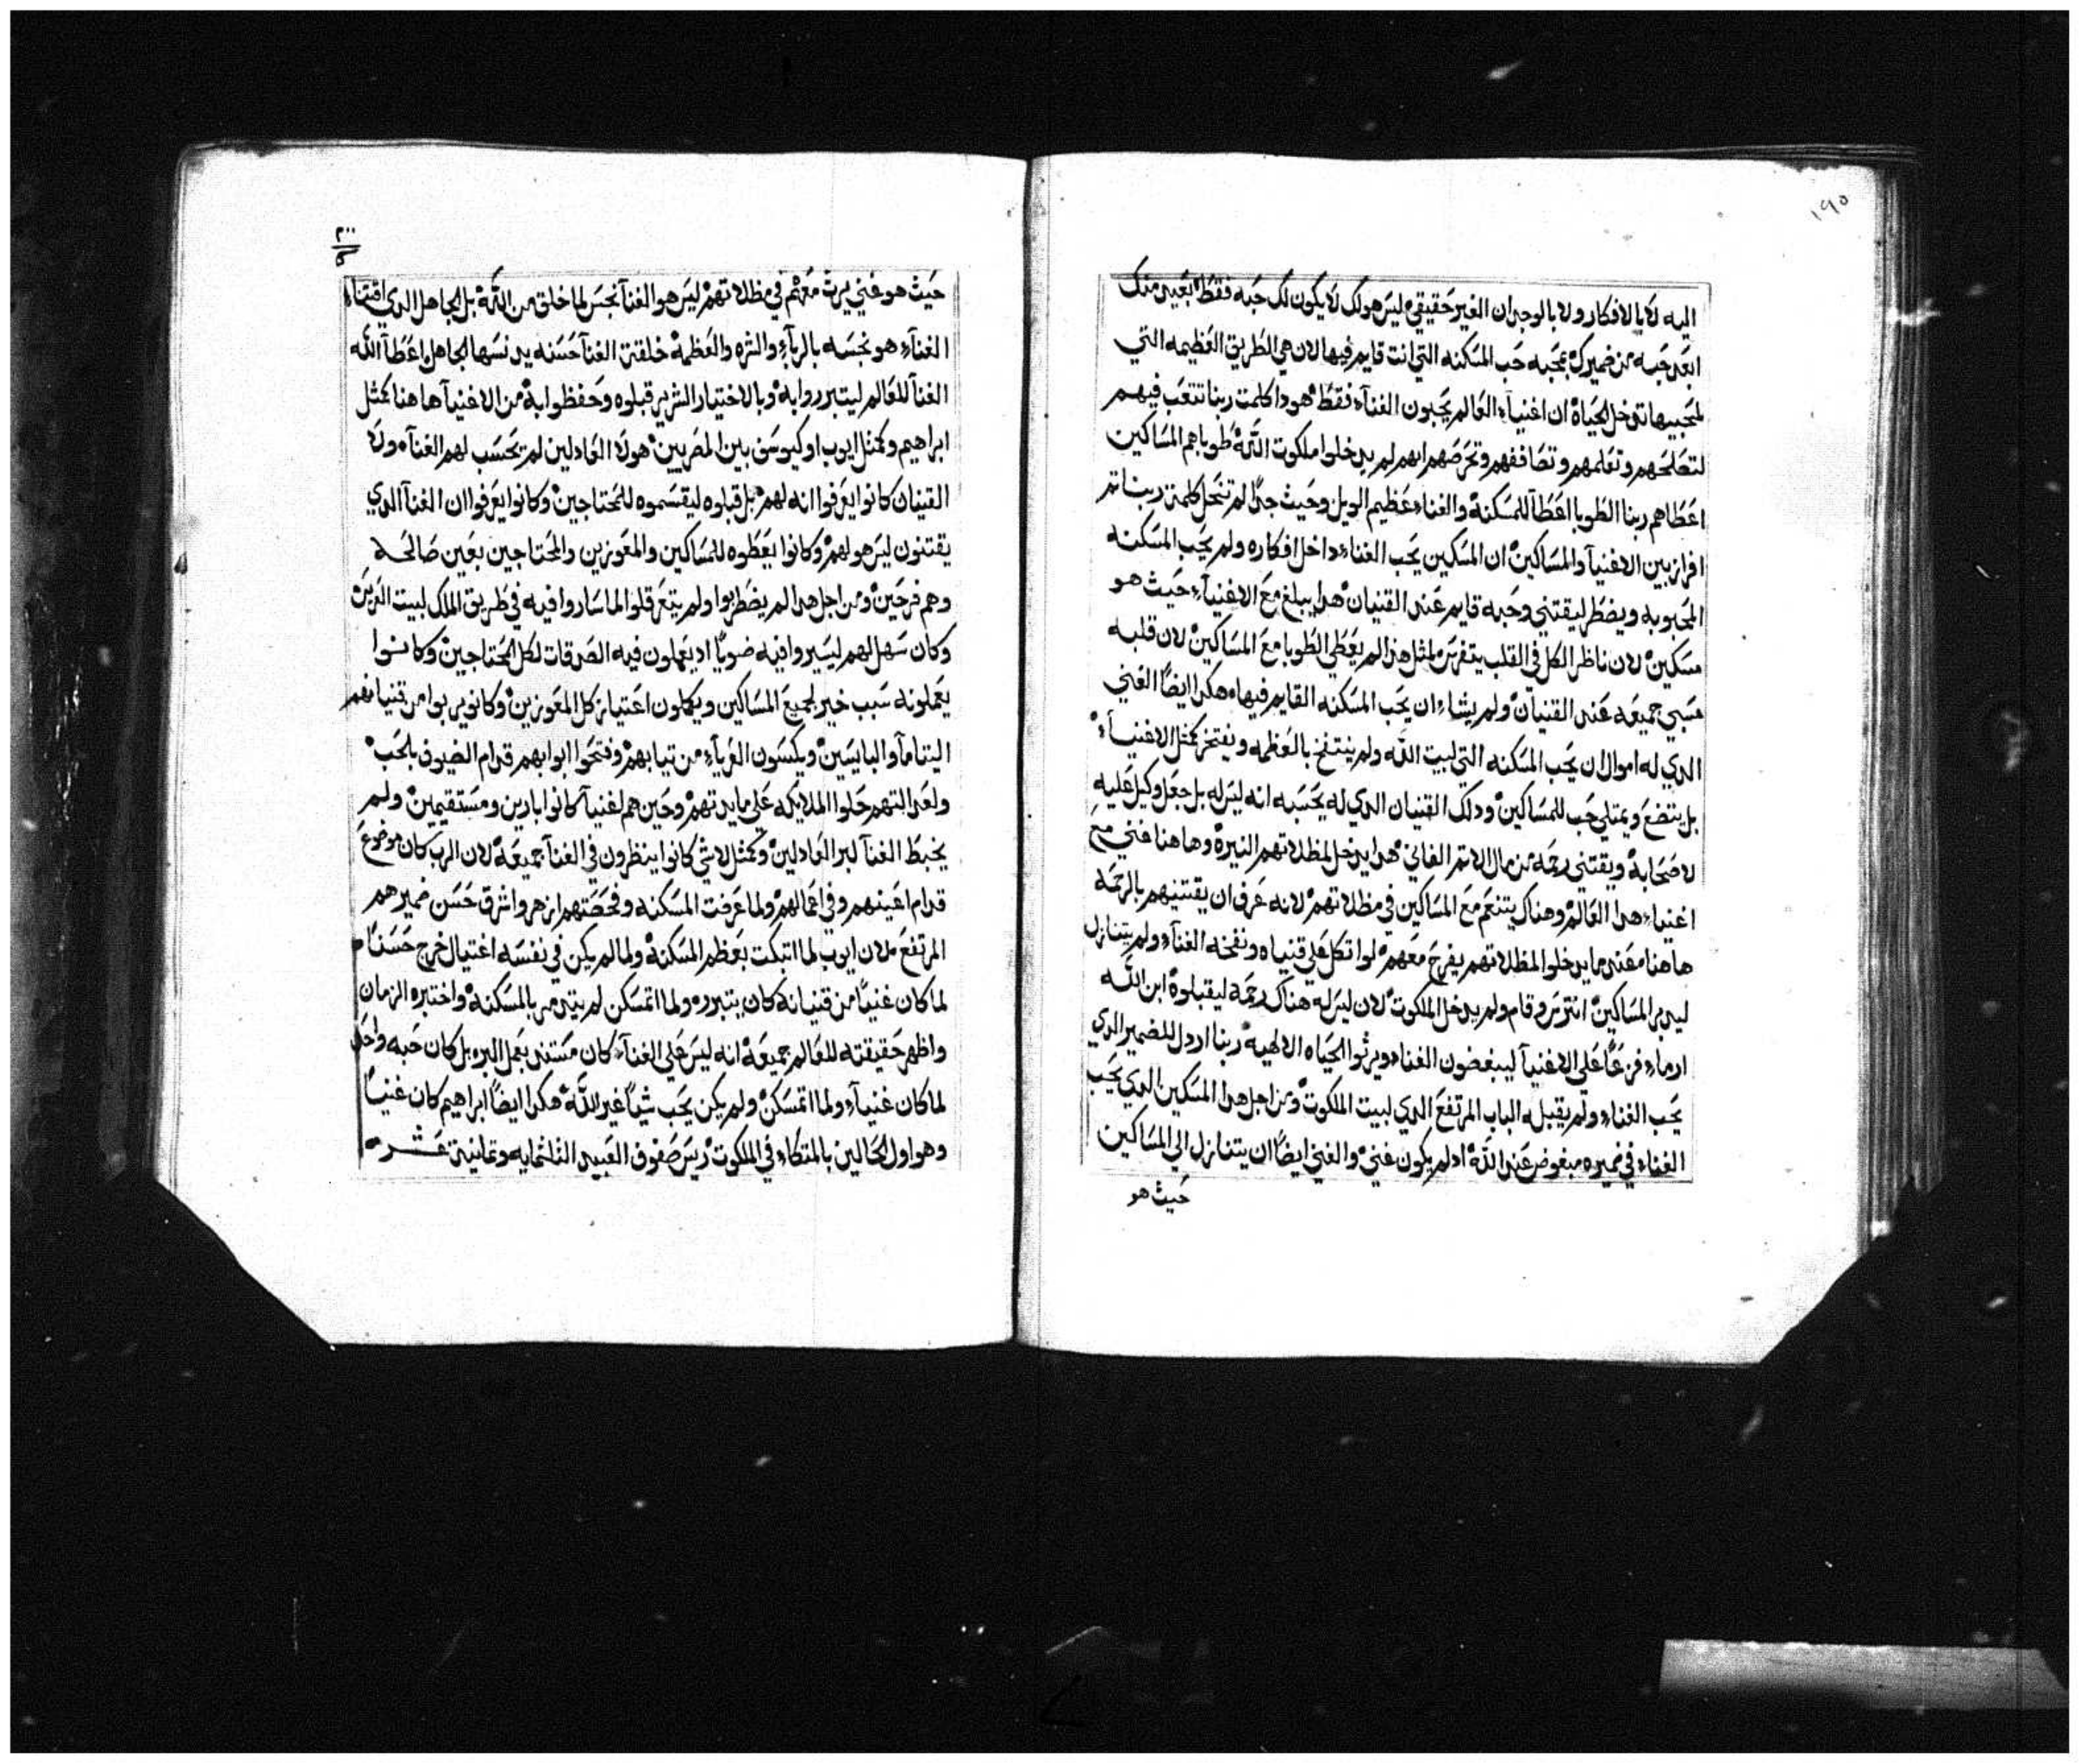 ١٩٥
اليه لا بالافكار ولا بالوجدان الغير حقيقي ليس هو لك لا يكون لك حبه فقط بعيد منك
ابعد حبه من ضميرك بمحبه حب المسكنه التي انت قايم فيها لان هي الطريق العظيمه التي
لمحبيها تدخل الحياة ان اغنياء العالم يحبون الغناء فقط هودا كلمت ربنا تتعب فيهم
لتصلحهم وتعلمهم وتحرضهم انهم لم يدخلوا ملكوت الله طوباهم المساكين
اعطاهم ربنا الطوبا اعطا للمسكنة والغناء عظيم الويل وحيث جدًا لم تنحل كلمة ربنا تم
افراز بين الاغنيآ والمساكين ان المسكين يحب الغناء داخل افكاره ولم يحب المسكنه
المحبوبه ويضطر ليقتني وحبه قايم عند القنيان هدا يبلغ مع الاغنيآء حيث هو
مسكين لان ناظر الكل في القلب يتفرس لمثل هدا لم يعطي الطوبا مع المساكين لان قلبه
مسبي جميعه عند القنيان ولم يشاء ان يحب المسكنه القايم فيها هكدا ايضًا الغني
الدي له اموال ان يحب المسكنه التي لبيت الله ولم ينتفخ بالعظمه ويفتخر كمثل الاغنيآء
بل يتضع ويمتلي حب للمساكين ودلك القنيان الدي له يحسبه انه ليس له بل جعل وكيل عليه
لاصحابة ويقتني رحمه من مال الاتم الفاني هدا يدخل لمظلاتهم النيرة وها هنا غني مع
اغنياء هدا العالم وهناك يتنعم مع المساكين في مظلاتهم لانه عرف ان يقتنيهم بالرحمه
ها هنا معند ما يدخلوا المظلاتهم يفرح معهم لو اتكل علي قنياه ونفخه الغنآء ولم يتنازل
ليدبر المساكين انترس وقام ولم يدخل الملكوت لان ليس له هناك رحمه ليقبلوة ابن الله
ارماء فزعًا علي الاغنيآ ليبغضون الغناء ويرثوا الحياه الالهيه ربنا اردل للضمير الدي
يحب الغناء ولم يقبله الباب المرتفع الدي لبيت الملكوت ومن اجل هدا المسكين الدي يحب
الغناء في ضميره مبغوض عند الله اد لم يكون غني والغني ايضًا ان يتنازل الي المساكين
حيث هو
حيث هو غني يرث معهم في مظلاتهم ليس هو الغنآ نجس لما خلق من الله بل الجاهل الدي اقتناه
الغنآء هو نجسه بالريآء والشره والعظمة خلقة الغنآ حسنه يدنسها الجاهل اعطآ الله
الغنآ للعالم ليتبرروا بة وبالاختيار الشرير قبلوه وحفظوا بة من الاغنيآ ها هنا كمثل
ابراهيم وكمثل ايوب او كيوسف بين المصريين هولا العادلين لم تحسب لهم الغنآه ولا
القنيان كانوا يعرفوا انه لهم بل قبلوه ليقسموه للمحتاجين وكانوا يعرفوا ان الغنآ الدي
يقتنون ليس هو لهم وكانوا يعطوه للمساكين والمعوزين والمحتاجين بعين صالحه
وهم فرحين ومن اجل هدا لم يضطربوا ولم يتعرقلوا لما ساروا فيه في طريق الملك لبيت
وكان سهل لهم ليسيروا فيه ضويًا اد يعملون فيه الصدقات لكل المحتاجين وكانوا
يعملونه سبب خير لجميع المساكين ويكملون اعتياز كل المعوزين وكانو يربوا من قنيانهم
اليتامآ والبايسين ويكسون العريآء من تيابهم وفتحوا ابوابهم قدام الضيوف بالحب
ولعدالتهم حلوا الملايكه علي مايدتهم وحين هم اغنيآ كانوا بارين ومستقيمين ولم
يخبط الغنآ لبر العادلين وكمثل لا شي كانوا ينظرون في الغنآ جميعة لان الرب كان موضوع
قدام اعينهم وفي اعمالهم ولما عرفت المسكنه وفحصتهم ازهر واشرق حسن ضميرهم
المرتفع لان ايوب لما اتبكت بعظم المسكنة ولما لم يكن في نفسه اغتيال خرج حسنًا
لما كان غنيًا من قنيانة كان يتبرره ولما اتمسكن لم يتدمر بالمسكنة واختبره الزمان
واظهر حقيقته للعالم جميعة انه ليس علي الغنآء كان مستند بعمل البره بل كان حبه واحد
لما كان غنيآء ولما اتمسكن ولم يكن يحب شيًا غير الله هكدا ايضًا ابراهيم كان غنيًا
وهو اول الحالين بالمتكاء في الملكوت ريس صفوف العبيد التلتمايه وتمانية عشره